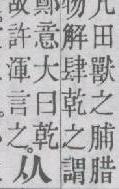 凡田獸之脯腊
物解肆乾之謂
鄭意大曰乾
故許渾言之。
从